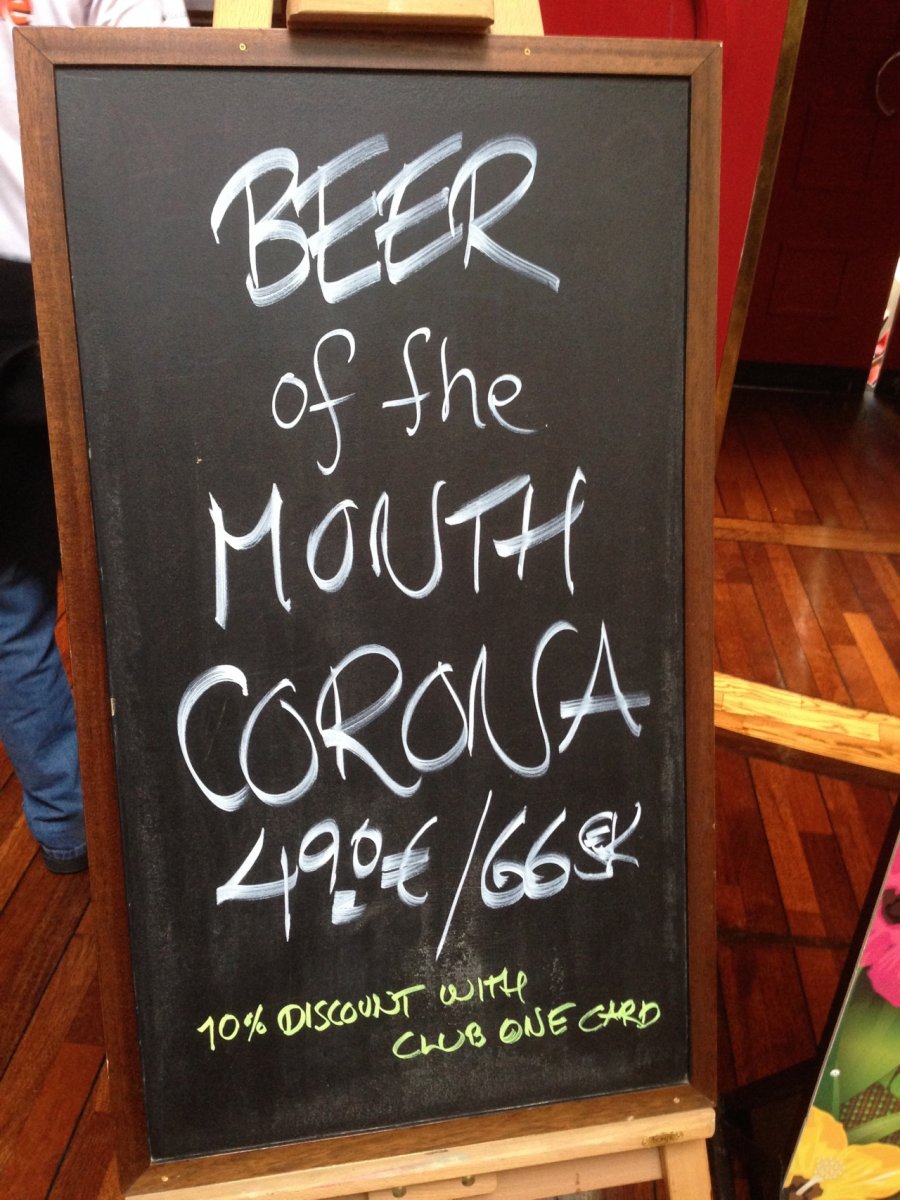 BEER
of the
MONTH
CORONA
490€/66 SEK
10% DISCOUNT WITH
CLUB ONE CARD